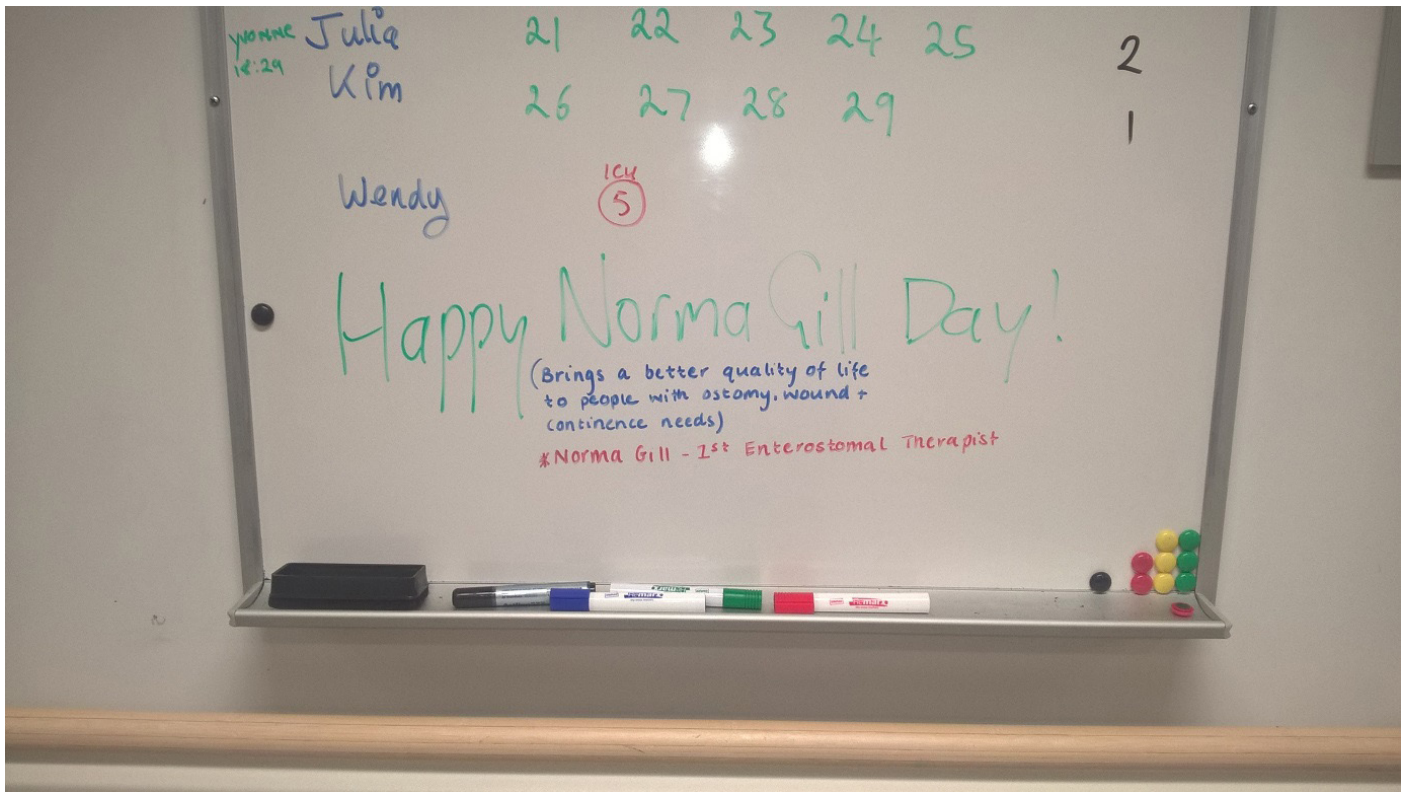 YVONNE Julia 21 22 23 24 25 2
18:29
Kim 26 27 28 29 1
Wendy ICU 5
Happy Norma Gill Day!
(Brings a better quality of life
to people with ostomy, wound +
continence needs)
*Norma Gill - 1st Enterostomal Therapist